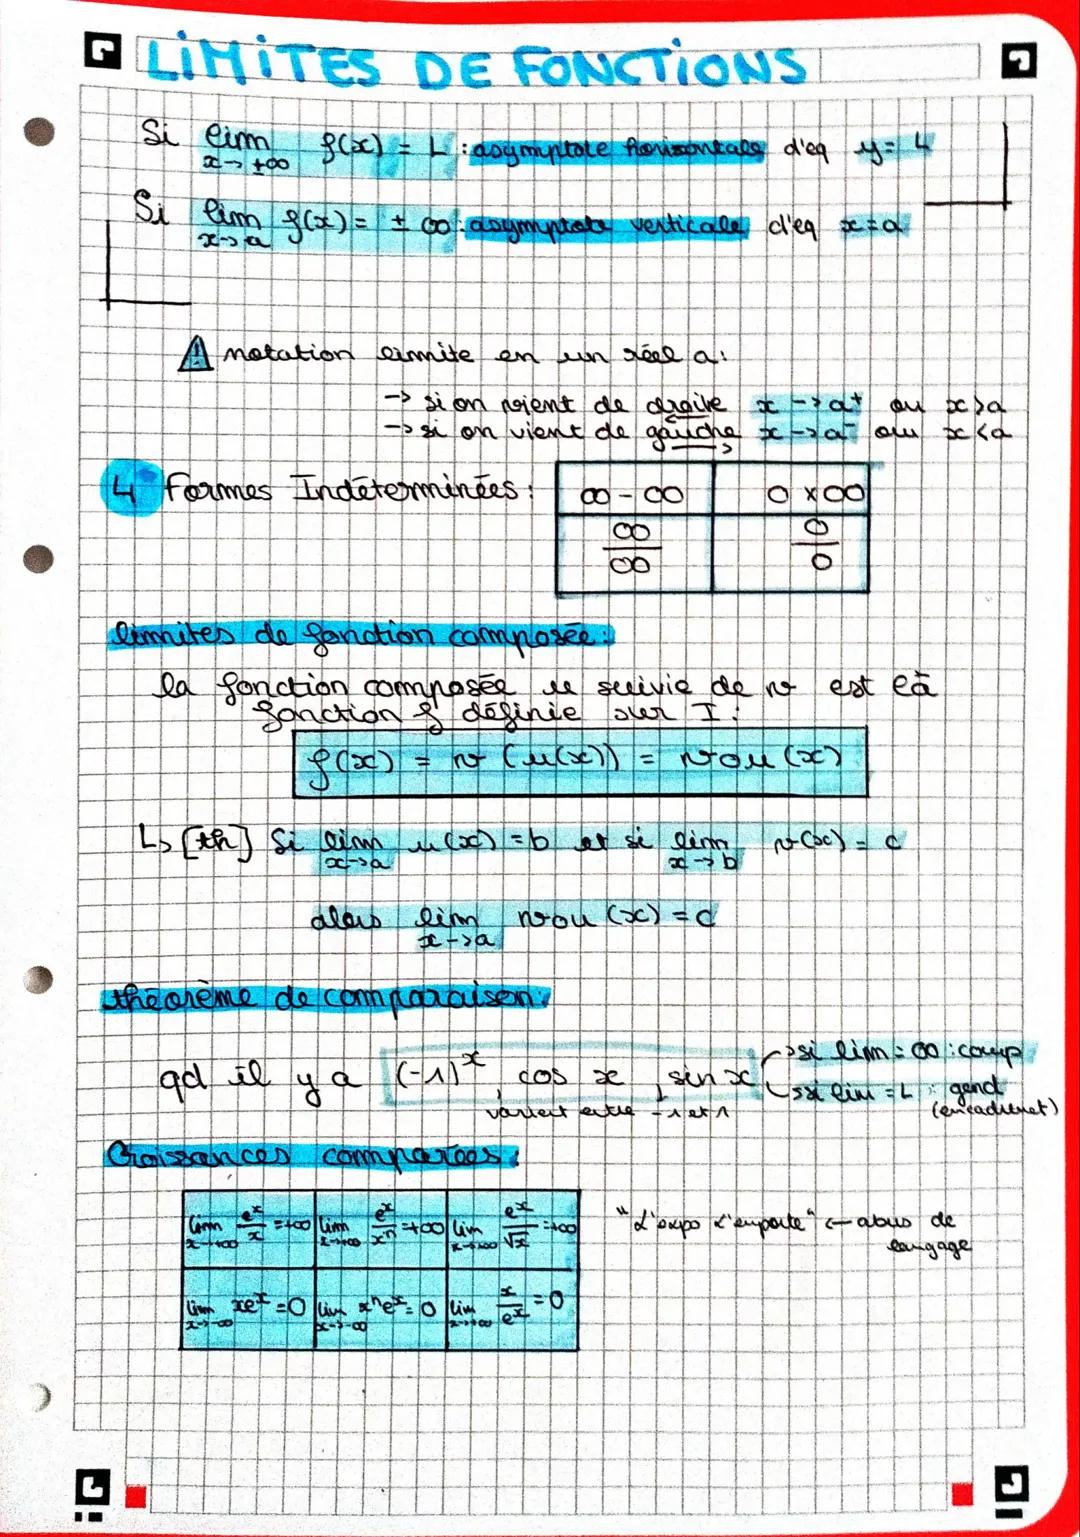 LIMITES DE FONCTIONS
Si lim x→±∞ f(x) = L : asymptote horizontale d'eq y = L
Si lim x→a f(x) = ± ∞ : asymptote verticale d'eq x = a
⚠ notation limite en un réel a :
→ si on vient de droite x → a⁺ ou x > a
→ si on vient de gauche x → a⁻ ou x < a
4 Formes Indéterminées :
∞ - ∞ 0 × ∞
∞/∞ 0/0
limites de fonction composée :
la fonction composée u suivie de v est la
fonction f définie sur I :
f(x) = v (u(x)) = v o u (x)
↳ [th] Si lim x→a u(x) = b et si lim x→b v(x) = c
alors lim x→a v o u (x) = c
théorème de comparaison :
qd il y a (-1)ˣ, cos x, sin x
→ si lim = ∞ : comp
→ si lim = L : gend
(encadremet)
varient entre -1 et 1
Croissances comparées :
lim x→+∞ eˣ/x = +∞ lim x→+∞ eˣ/xⁿ = +∞ lim x→+∞ eˣ/√x = +∞
lim x→-∞ xeˣ = 0 lim x→-∞ xⁿeˣ = 0 lim x→+∞ x/eˣ = 0
"L'expo l'emporte" ← abus de
langage